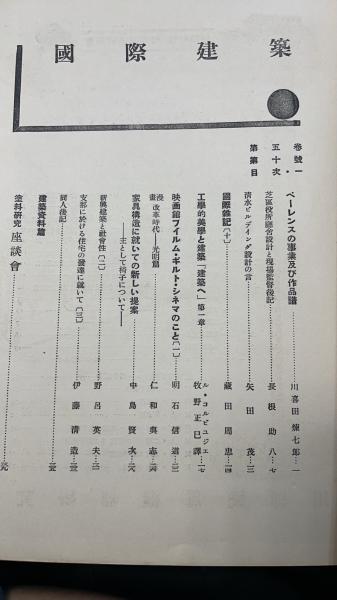 國際建築
第五卷・第十一號
目次
ベーレンスの事業及び作品譜……川喜田煉七郎…一
芝區役所廳舍設計と現場監督後記……長根助八…七
淸水ビルデイング設計の言……矢田茂…三
國際雜記〔十〕……藏田周忠…
工學的美學と建築「建築へ」第一章……ル・コルビュジエ 牧野正巳譯…一七
映画館フイルム・ギルト・シネマのこと〔一〕……明石信道…
漫畫 改革時代—光明篇……仁和典志…
家具構造に就いての新しい提案
——主として椅子について——……中島賢次…
新興建築と社會性〔二〕……野呂英夫…
支那に於ける住宅の發達に就いて〔三〕……伊藤淸造…
同人後記
建築資料篇
塗料研究 座談會……